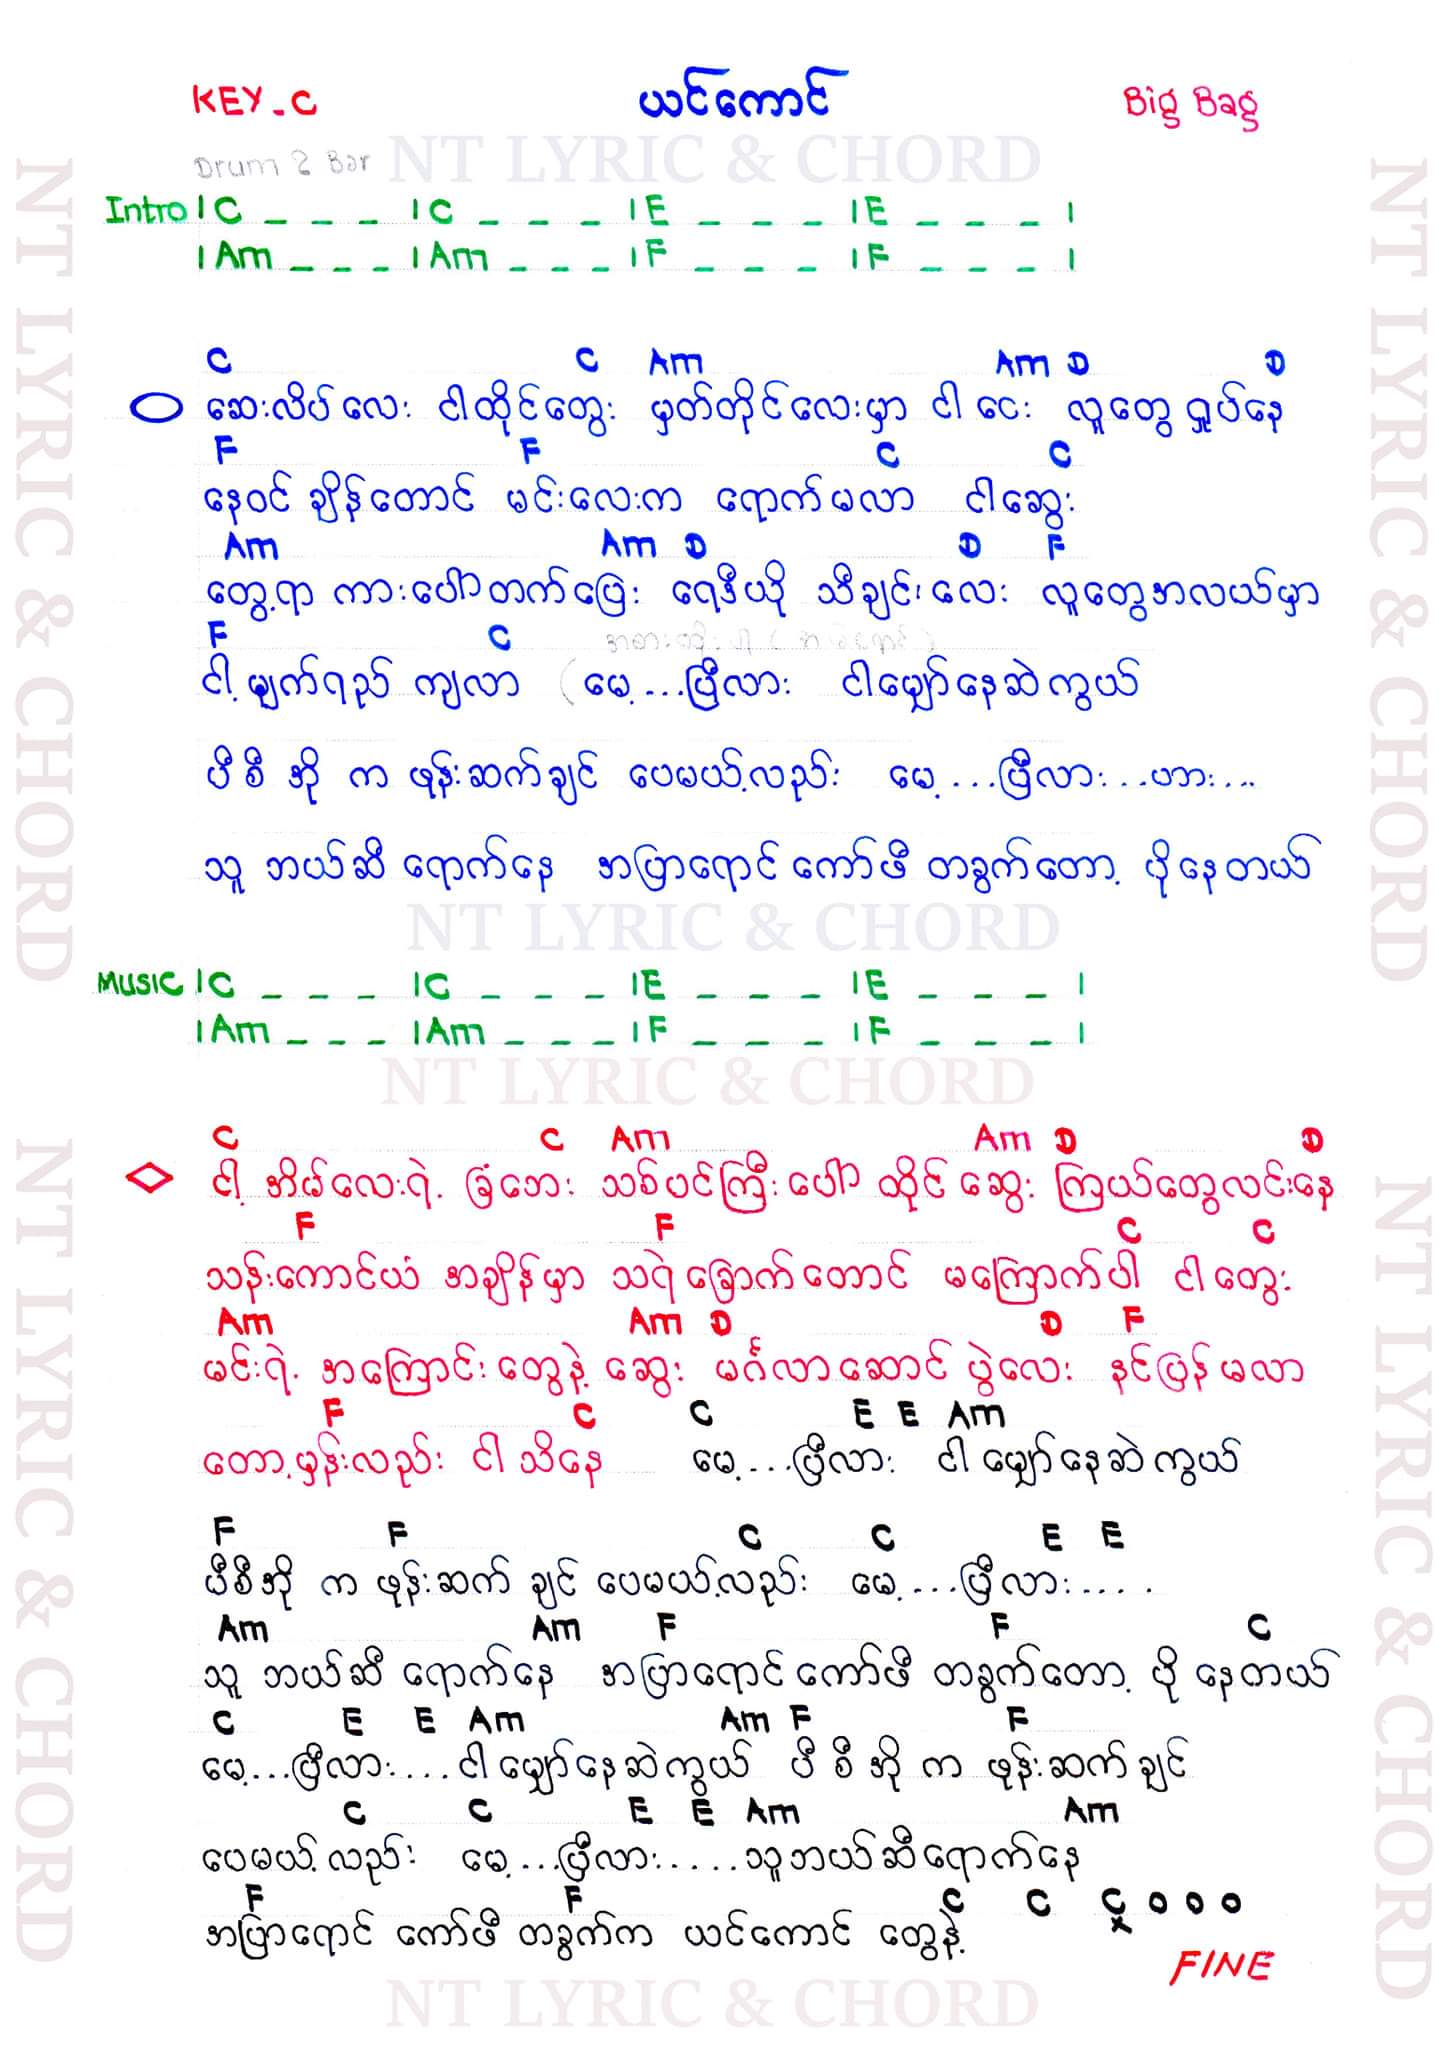 KEY - C
ယင်ကောင်
Big Bag
Drum 2 Bar
NT LYRIC & CHORD
Intro | C _ _ _ | C _ _ _ | E _ _ _ | E _ _ _ |
| Am _ _ _ | Am _ _ _ | F _ _ _ | F _ _ _ |
C C Am Am D D
ဆေးလိပ်လေး ငါထိုင်တွေး မှတ်တိုင်လေးမှာ ငါ ငေး လူတွေ ရှုပ်နေ
F F C C
နေဝင် ချိန်တောင် မင်းလေးက ရောက်မလာ ငါဆွေး
Am Am D D F
တွေ့ရာ ကားပေါ်တက်ပြေး ရေဒီယို သီချင်းလေး လူတွေအလယ်မှာ
F C
ငါ့ မျက်ရည် ကျလာ ( မေ့...ပြီလား ငါမျှော်နေဆဲကွယ်
ပီစီအို က ဖုန်းဆက်ချင် ပေမယ့်လည်း မေ့...ပြီလား...ဟား...
သူ ဘယ်ဆီ ရောက်နေ အပြာရောင် ကော်ဖီ တခွက်တော့ ပိုနေတယ်
NT LYRIC & CHORD
MUSIC | C _ _ _ | C _ _ _ | E _ _ _ | E _ _ _ |
| Am _ _ _ | Am _ _ _ | F _ _ _ | F _ _ _ |
NT LYRIC & CHORD
C C Am Am D D
ငါ့ အိမ်လေးရဲ့ ခြံဘေး သစ်ပင်ကြီးပေါ် ထိုင် ဆွေး ကြယ်တွေလင်းနေ
F F C C
သန်းကောင်ယံ အချိန်မှာ သရဲခြောက်တောင် မကြောက်ပါ ငါတွေး
Am Am D D F
မင်းရဲ့ အကြောင်းတွေနဲ့ ဆွေး မင်္ဂလာဆောင် ပွဲလေး နင်ပြန်မလာ
F C C E E Am
တော့မှန်းလည်း ငါ သိနေ မေ့...ပြီလား ငါမျှော်နေဆဲကွယ်
F F C C E E
ပီစီအို က ဖုန်းဆက် ချင် ပေမယ့်လည်း မေ့....ပြီလား....
Am Am F F C
သူ ဘယ်ဆီ ရောက်နေ အပြာရောင် ကော်ဖီ တခွက်တော့ ပို နေတယ်
C E E Am Am F F
မေ့...ပြီလား....ငါမျှော်နေဆဲကွယ် ပီစီအို က ဖုန်းဆက်ချင်
C C E E Am Am
ပေမယ့်လည်း မေ့...ပြီလား.....သူဘယ်ဆီရောက်နေ
F F C C C o o o
အပြာရောင် ကော်ဖီ တခွက်က ယင်ကောင် တွေနဲ့
FINE
NT LYRIC & CHORD
NT LYRIC & CHORD
NT LYRIC & CHORD
NT LYRIC & CHORD
NT LYRIC & CHORD